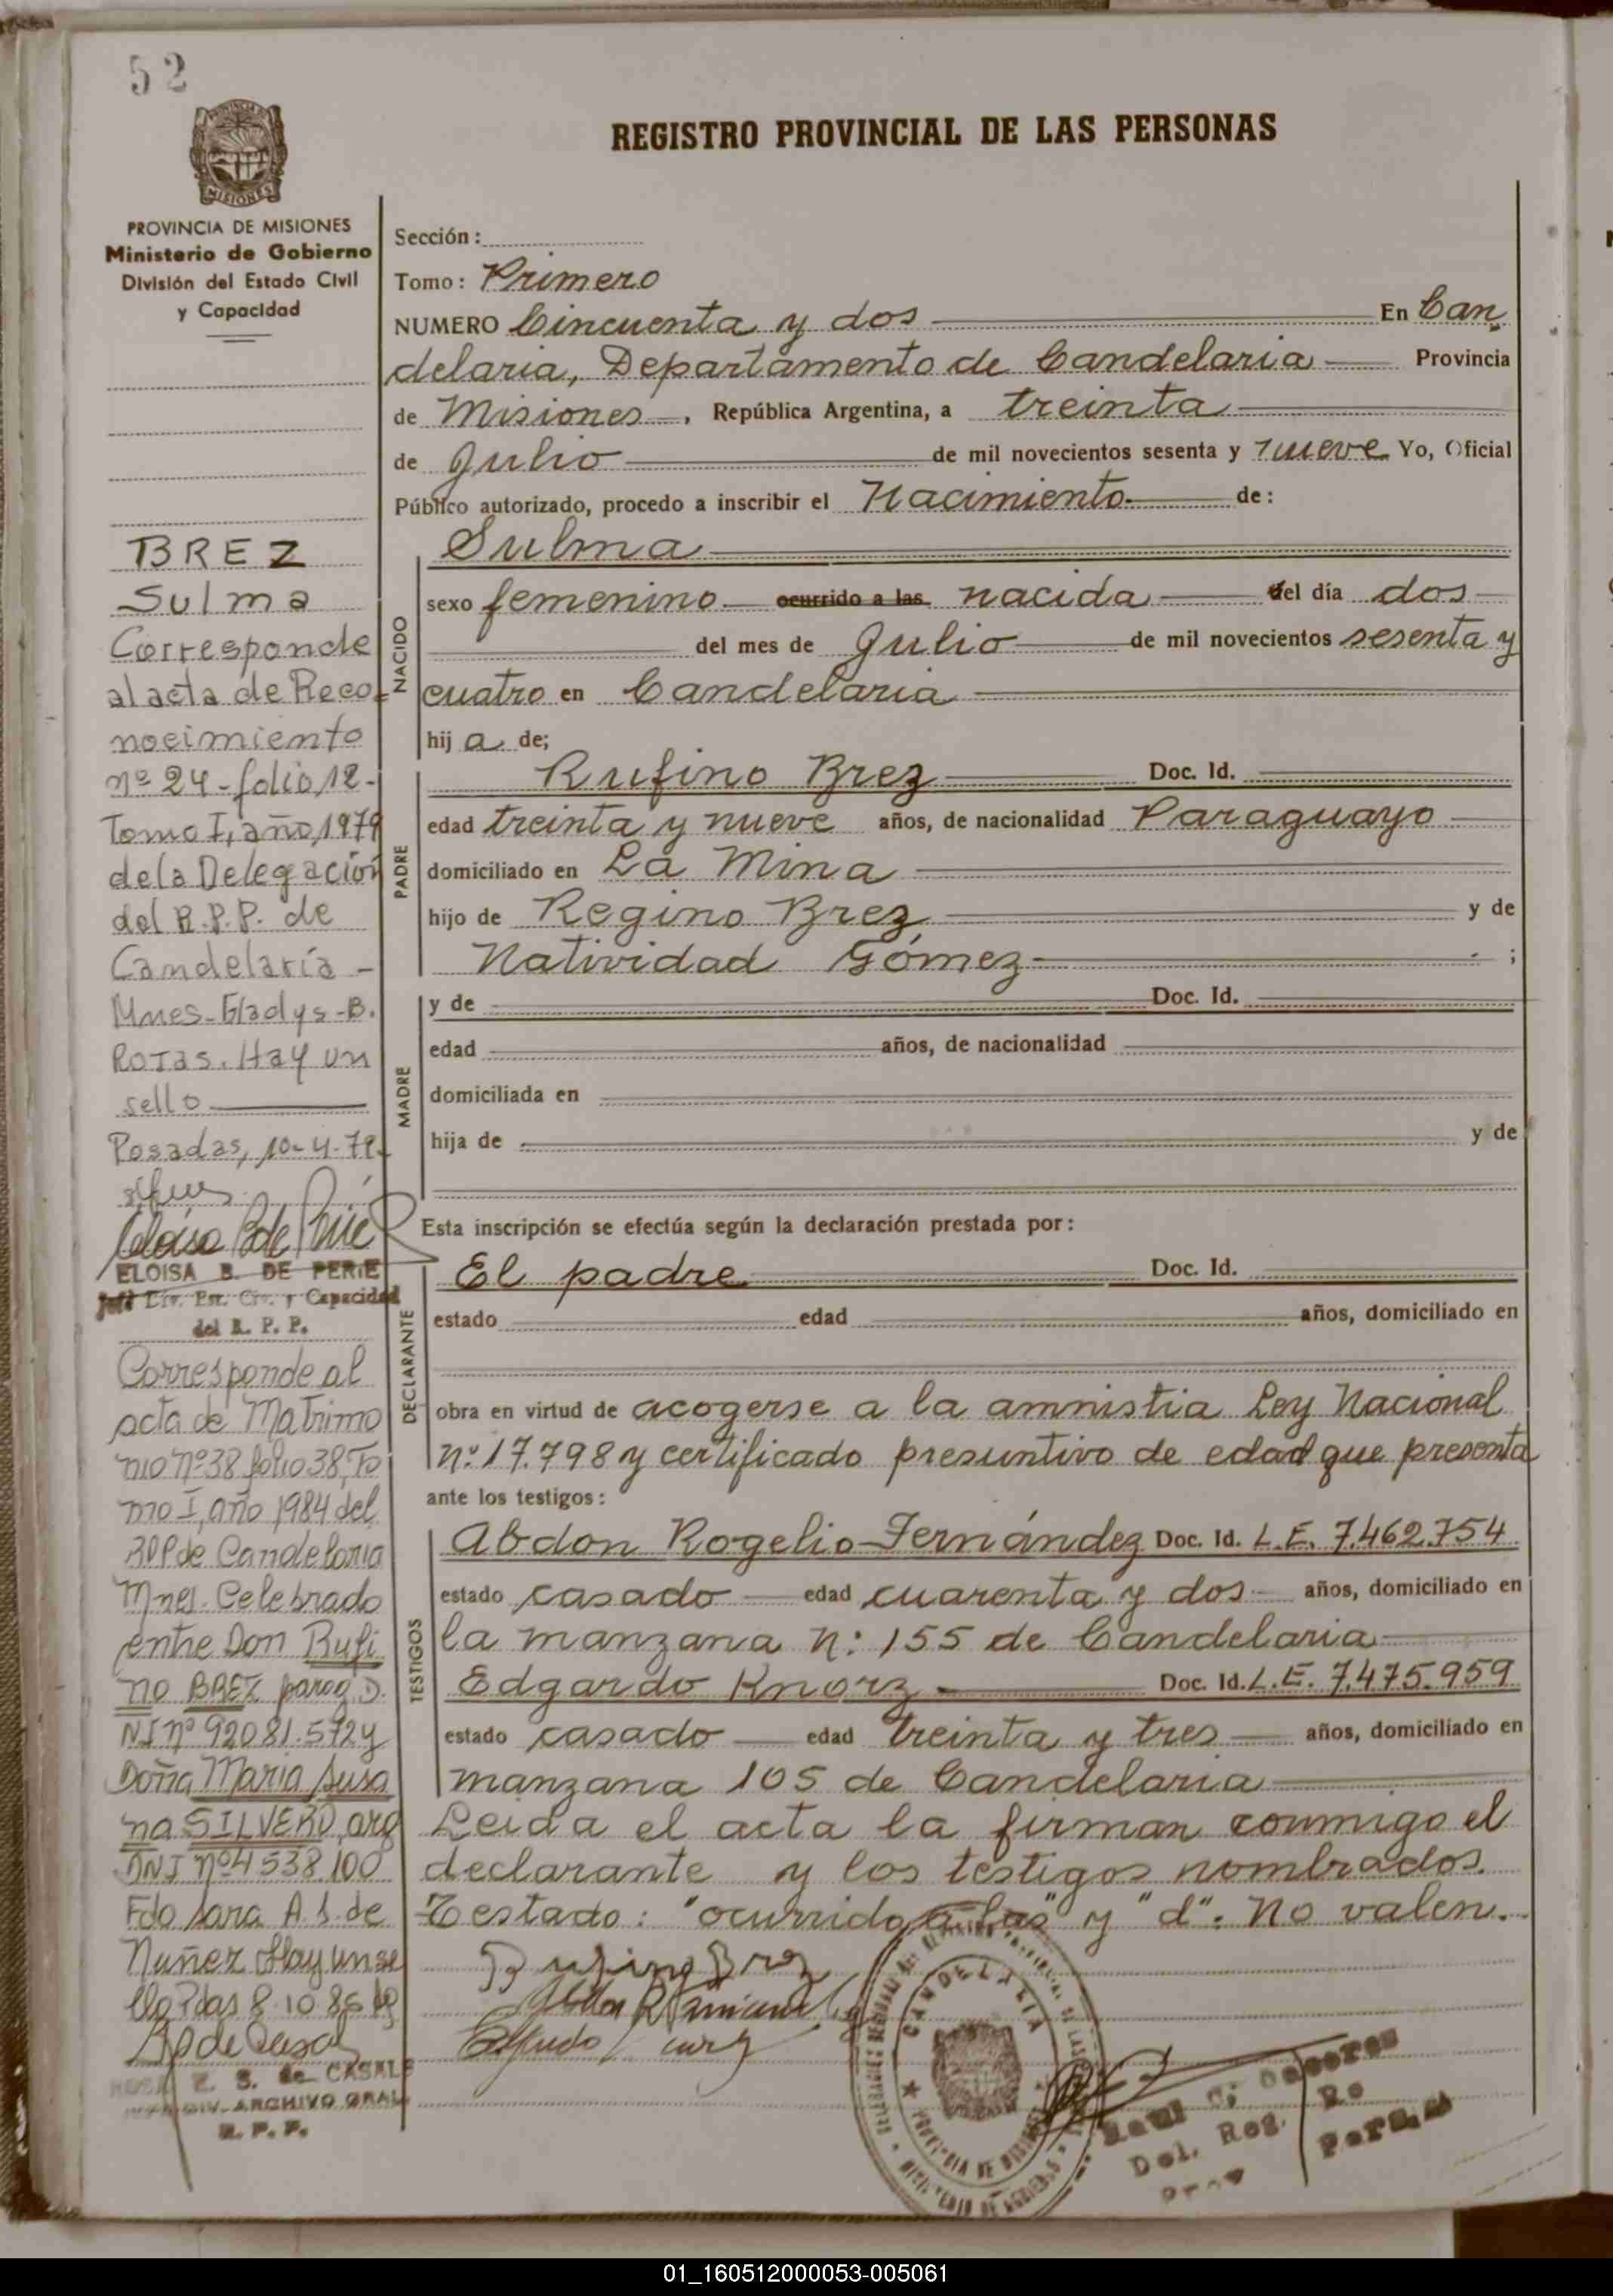 52
REGISTRO PROVINCIAL DE LAS PERSONAS
MISIONES
PROVINCIA DE MISIONES
Ministerio de Gobierno
División del Estado Civil
y Capacidad
BREZ
Sulma
Corresponde
al acta de Reco-
nocimiento
nº 24-folio 12-
Tomo I, año, 1979
de la Delegación
del R.P.P. de
Candelaria -
Mnes-Gladys-B.
Rojas. Hay un
sello
Posadas, 10-4-79
ELOISA B. DE PERIE
Jefe Div. Est. Civ. y Capacidad
del R. P. P.
Corresponde al
acta de Matrimo
nio nº 38 folio 38, To
mo I, año 1984 del
RPP de Candelaria
Mnes. Celebrado
entre Don Rufi
no BREZ parag. D.
NI nº 92081.572 y
Doña Maria Susa
na SILVERO, arg
DNI nº 4538.100
Fdo Sara A. S. de
Nuñez Hay un se
llo Pdas 8.10.86
S. de CASALE
DIV. ARCHIVO GRAL
R. P. P.
Sección:
Tomo: Primero
NUMERO Cincuenta y dos En Can
delaria, Departamento de Candelaria Provincia
de Misiones, República Argentina, a treinta
de Julio de mil novecientos sesenta y nueve Yo, Oficial
Público autorizado, procedo a inscribir el Nacimiento de:
NACIDO
Sulma
sexo femenino ocurrido a las nacida del día dos
del mes de Julio de mil novecientos sesenta y
cuatro en Candelaria
hij a de;
PADRE
Rufino Brez Doc. Id.
edad treinta y nueve años, de nacionalidad Paraguayo
domiciliado en La Mina
hijo de Regino Brez y de
Natividad Gómez ;
MADRE
y de Doc. Id.
edad años, de nacionalidad
domiciliada en
hija de y de
Esta inscripción se efectúa según la declaración prestada por:
DECLARANTE
El padre Doc. Id.
estado edad años, domiciliado en
obra en virtud de acogerse a la amnistia Ley Nacional
nº 17.798 y certificado presuntivo de edad que presenta
ante los testigos:
TESTIGOS
Abdon Rogelio Fernández Doc. Id. L.E. 7.462.754
estado casado edad cuarenta y dos años, domiciliado en
la manzana n: 155 de Candelaria
Edgardo Knorz Doc. Id. L.E. 7.475.959
estado casado edad treinta y tres años, domiciliado en
manzana 105 de Candelaria
Leida el acta la firman conmigo el
declarante y los testigos nombrados.
Testado: "ocurrido a las" y "d". No valen.
Rufino Brez
CANDELARIA
PROVINCIA DE MISIONES
Del. Reg.
01_160512000053-005061